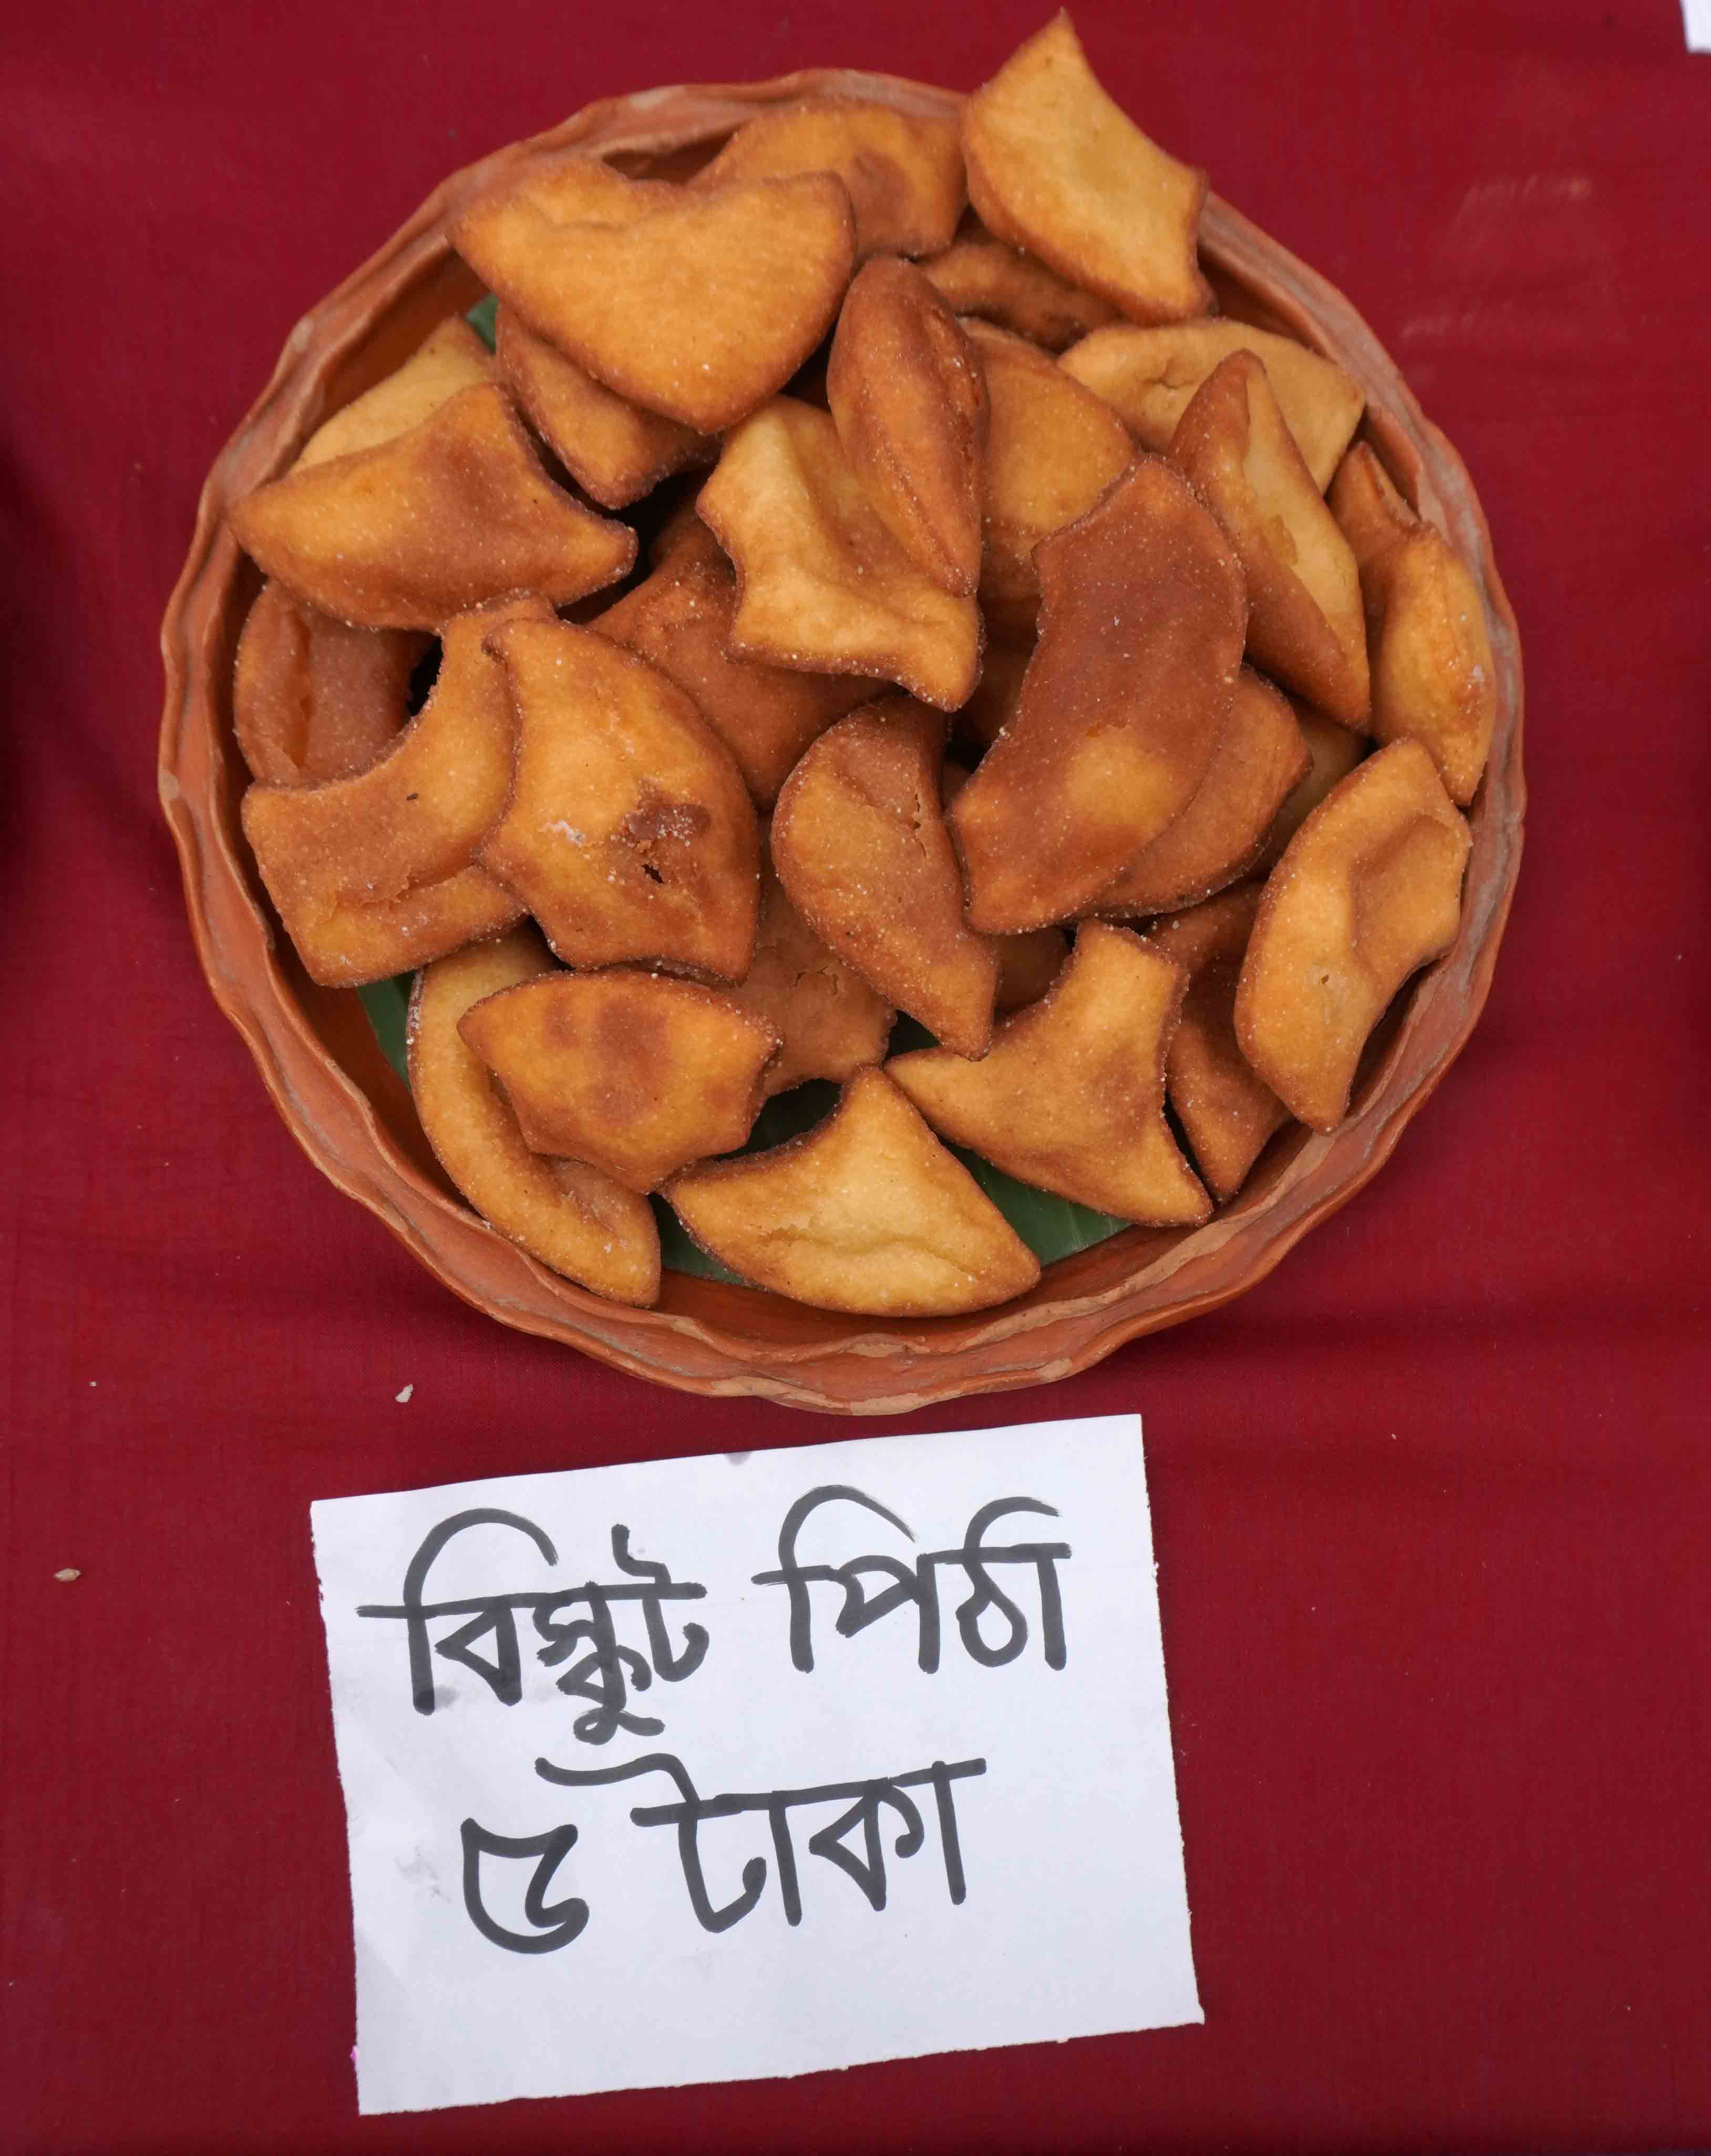 বিস্কুট পিঠা
৫ টাকা